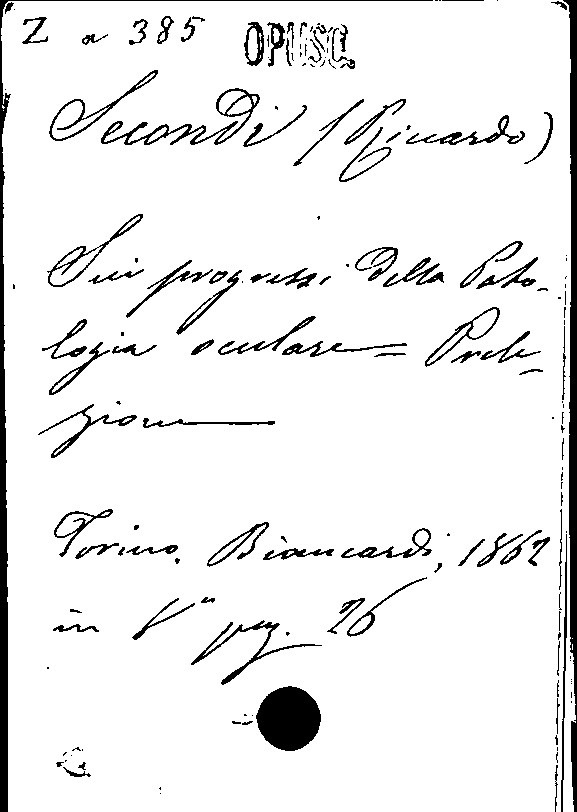 Z a 385 OPUSC.
Secondi (Riccardo)
Sui progressi della Pato-
logia oculare = Prele-
zione
Torino. Biancardi, 1862
in 8° pag. 26